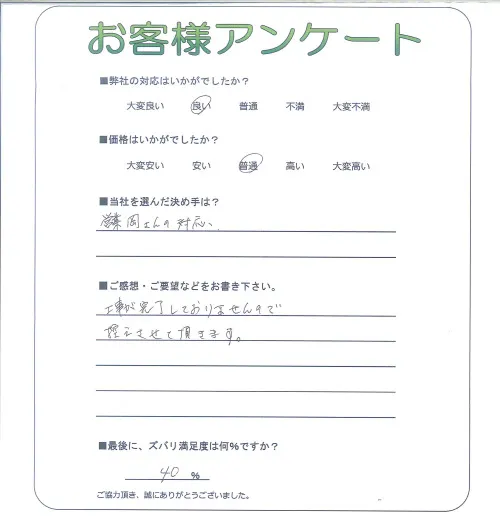 お客様アンケート
■弊社の対応はいかがでしたか?
大変良い 良い 普通 不満 大変不満
■価格はいかがでしたか?
大変安い 安い 普通 高い 大変高い
■当社を選んだ決め手は?
営業 岡さんの対応
■ご感想・ご要望などをお書き下さい。
工事が完了しておりませんので
控えさせて頂きます。
■最後に、ズバリ満足度は何%ですか?
40 %
ご協力頂き、誠にありがとうございました。